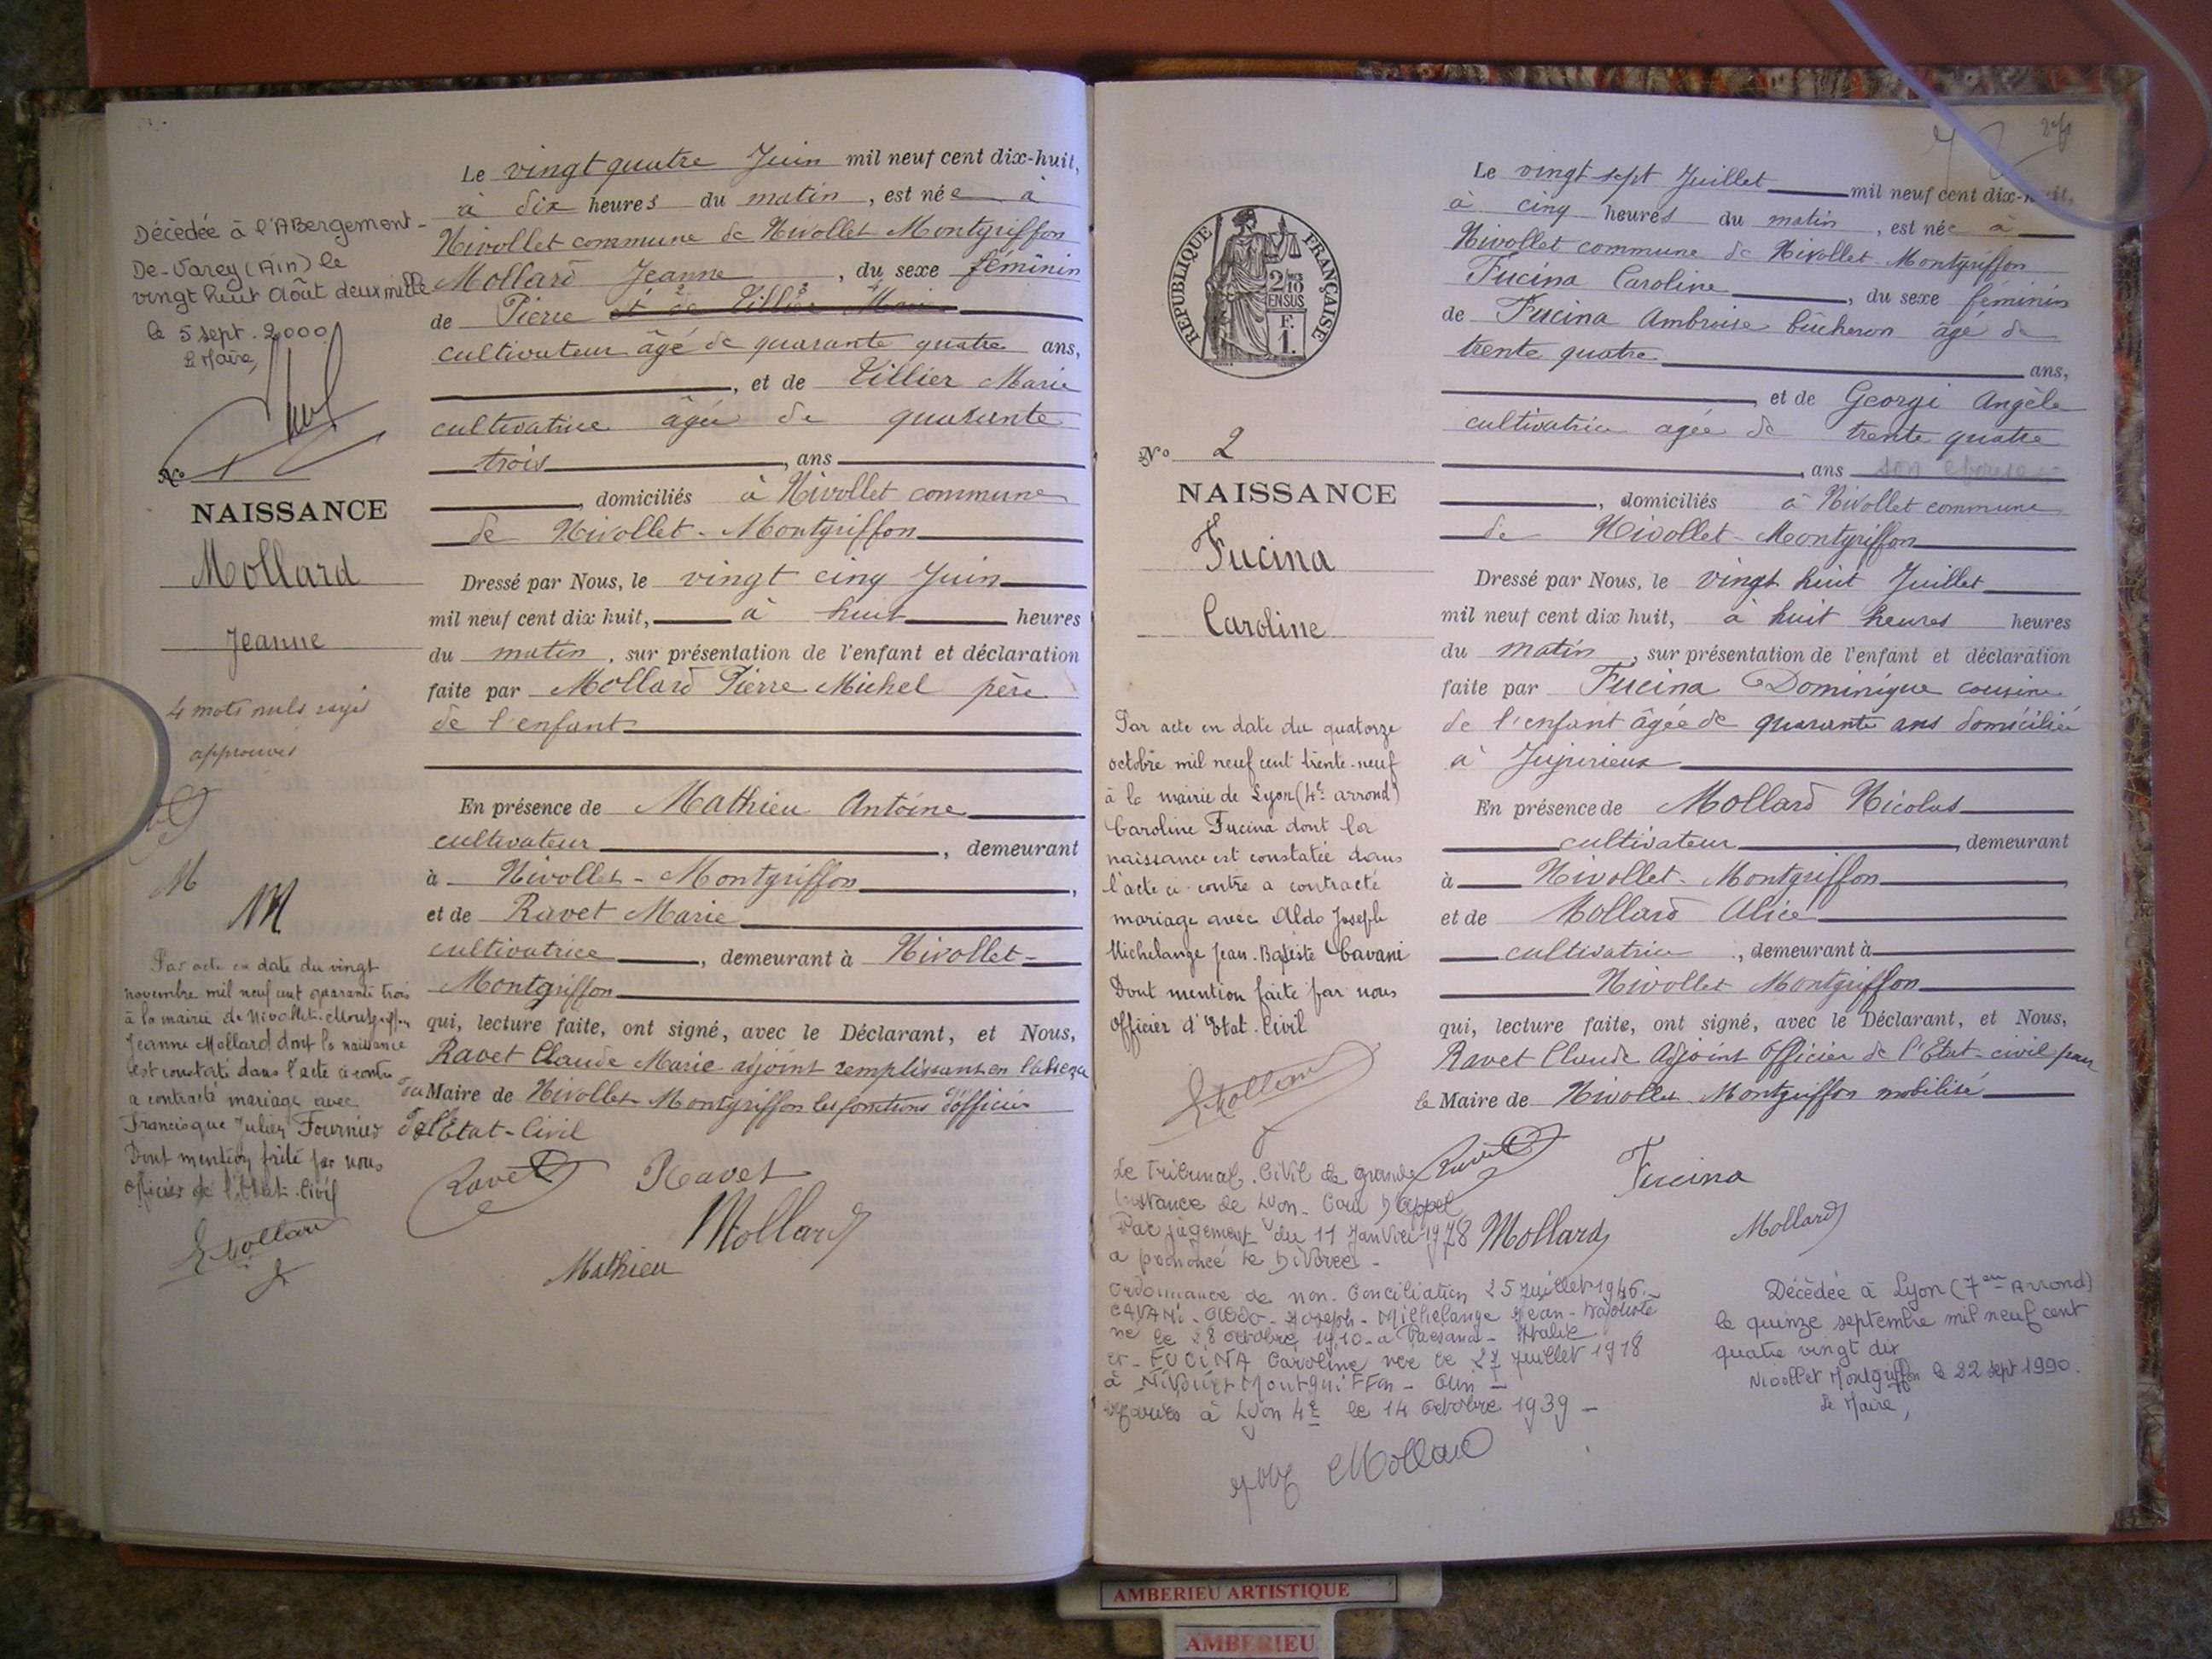 Décédée à l'Abergement-
De-Varey (Ain) le
vingt huit Août deux mille
le 5 sept. 2000
Le Maire,
No 1
NAISSANCE
Mollard
Jeanne
4 mots nuls rayés
approuvés
M
M
Par acte en date du vingt
novembre mil neuf cent quarante trois
à la mairie de Nivollet-Montgriffon
Jeanne Mollard dont la naissance
est constaté dans l'acte ci-contre
a contracté mariage avec
Francisque Julien Fournier
Dont mention faite par nous
Officier de l'Etat-Civil
Mollard
Le vingt quatre Juin mil neuf cent dix-huit,
à dix heures du matin, est née à
Nivollet commune de Nivollet Montgriffon
Mollard Jeanne, du sexe féminin
de Pierre et de Tillier Marie
cultivateur âgé de quarante quatre ans,
, et de Tillier Marie
cultivatrice âgée de quarante
trois, ans
, domiciliés à Nivollet commune
de Nivollet-Montgriffon
Dressé par Nous, le vingt cinq Juin
mil neuf cent dix huit, à huit heures
du matin, sur présentation de l'enfant et déclaration
faite par Mollard Pierre Michel père
de l'enfant
En présence de Mathieu Antoine
cultivateur, demeurant
à Nivollet-Montgriffon,
et de Ravet Marie
cultivatrice, demeurant à Nivollet-
Montgriffon
qui, lecture faite, ont signé, avec le Déclarant, et Nous,
Ravet Claude Marie adjoint remplissant en l'absence
du Maire de Nivollet Montgriffon les fonctions d'officier
de l'Etat-Civil
Ravet Ravet
Mollard
Mathieu
RÉPUBLIQUE FRANÇAISE
2/10
EN SUS
F.
1.
No 2
NAISSANCE
Fucina
Caroline
Par acte en date du quatorze
octobre mil neuf cent trente-neuf
à la mairie de Lyon (4e arrondt)
Caroline Fucina dont la
naissance est constatée dans
l'acte ci-contre a contracté
mariage avec Aldo Joseph
Michelange Jean-Baptiste Cavani
Dont mention faite par nous
Officier d'Etat-Civil
Mollard
Le vingt sept Juillet mil neuf cent dix-huit,
à cinq heures du matin, est née à
Nivollet commune de Nivollet-Montgriffon
Fucina Caroline, du sexe féminin
de Fucina Ambroise bûcheron âgé de
trente quatre ans,
et de Georgi Angèle
cultivatrice agée de trente quatre
, ans son épouse
, domiciliés à Nivollet commune
de Nivollet-Montgriffon
Dressé par Nous, le vingt huit Juillet
mil neuf cent dix huit, à huit heures heures
du matin, sur présentation de l'enfant et déclaration
faite par Fucina Dominique cousine
de l'enfant âgée de quarante ans domiciliée
à Jujurieux
En présence de Mollard Nicolas
cultivateur, demeurant
à Nivollet-Montgriffon,
et de Mollard Alice
cultivatrice, demeurant à
Nivollet Montgriffon
qui, lecture faite, ont signé, avec le Déclarant, et Nous,
Ravet Claude Adjoint Officier de l'Etat-civil pour
le Maire de Nivollet Montgriffon mobilisé
Ravet Fucina
Mollard Mollard
Le Tribunal Civil de Grande
Instance de Lyon - Cour D'Appel
Par jugement du 11 Janvier 1978
a prononcé le Divorce -
Ordonnance de non-Conciliation 25 Juillet 1946.-
CAVANI - Aldo - Joseph - Michelange Jean-Baptiste
né le 28 octobre 1910 - a Paesana - Italie
et - FUCINA Caroline née le 27 Juillet 1918
à Nivollet Montgriffon - Ain -
mariés à Lyon 4e le 14 Octobre 1939 -
Mollard
Décédée à Lyon (7em Arrond)
le quinze septembre mil neuf cent
quatre vingt dix
Nivollet Montgriffon le 22 sept 1990.
Le Maire,
AMBERIEU ARTISTIQUE
AMBERIEU